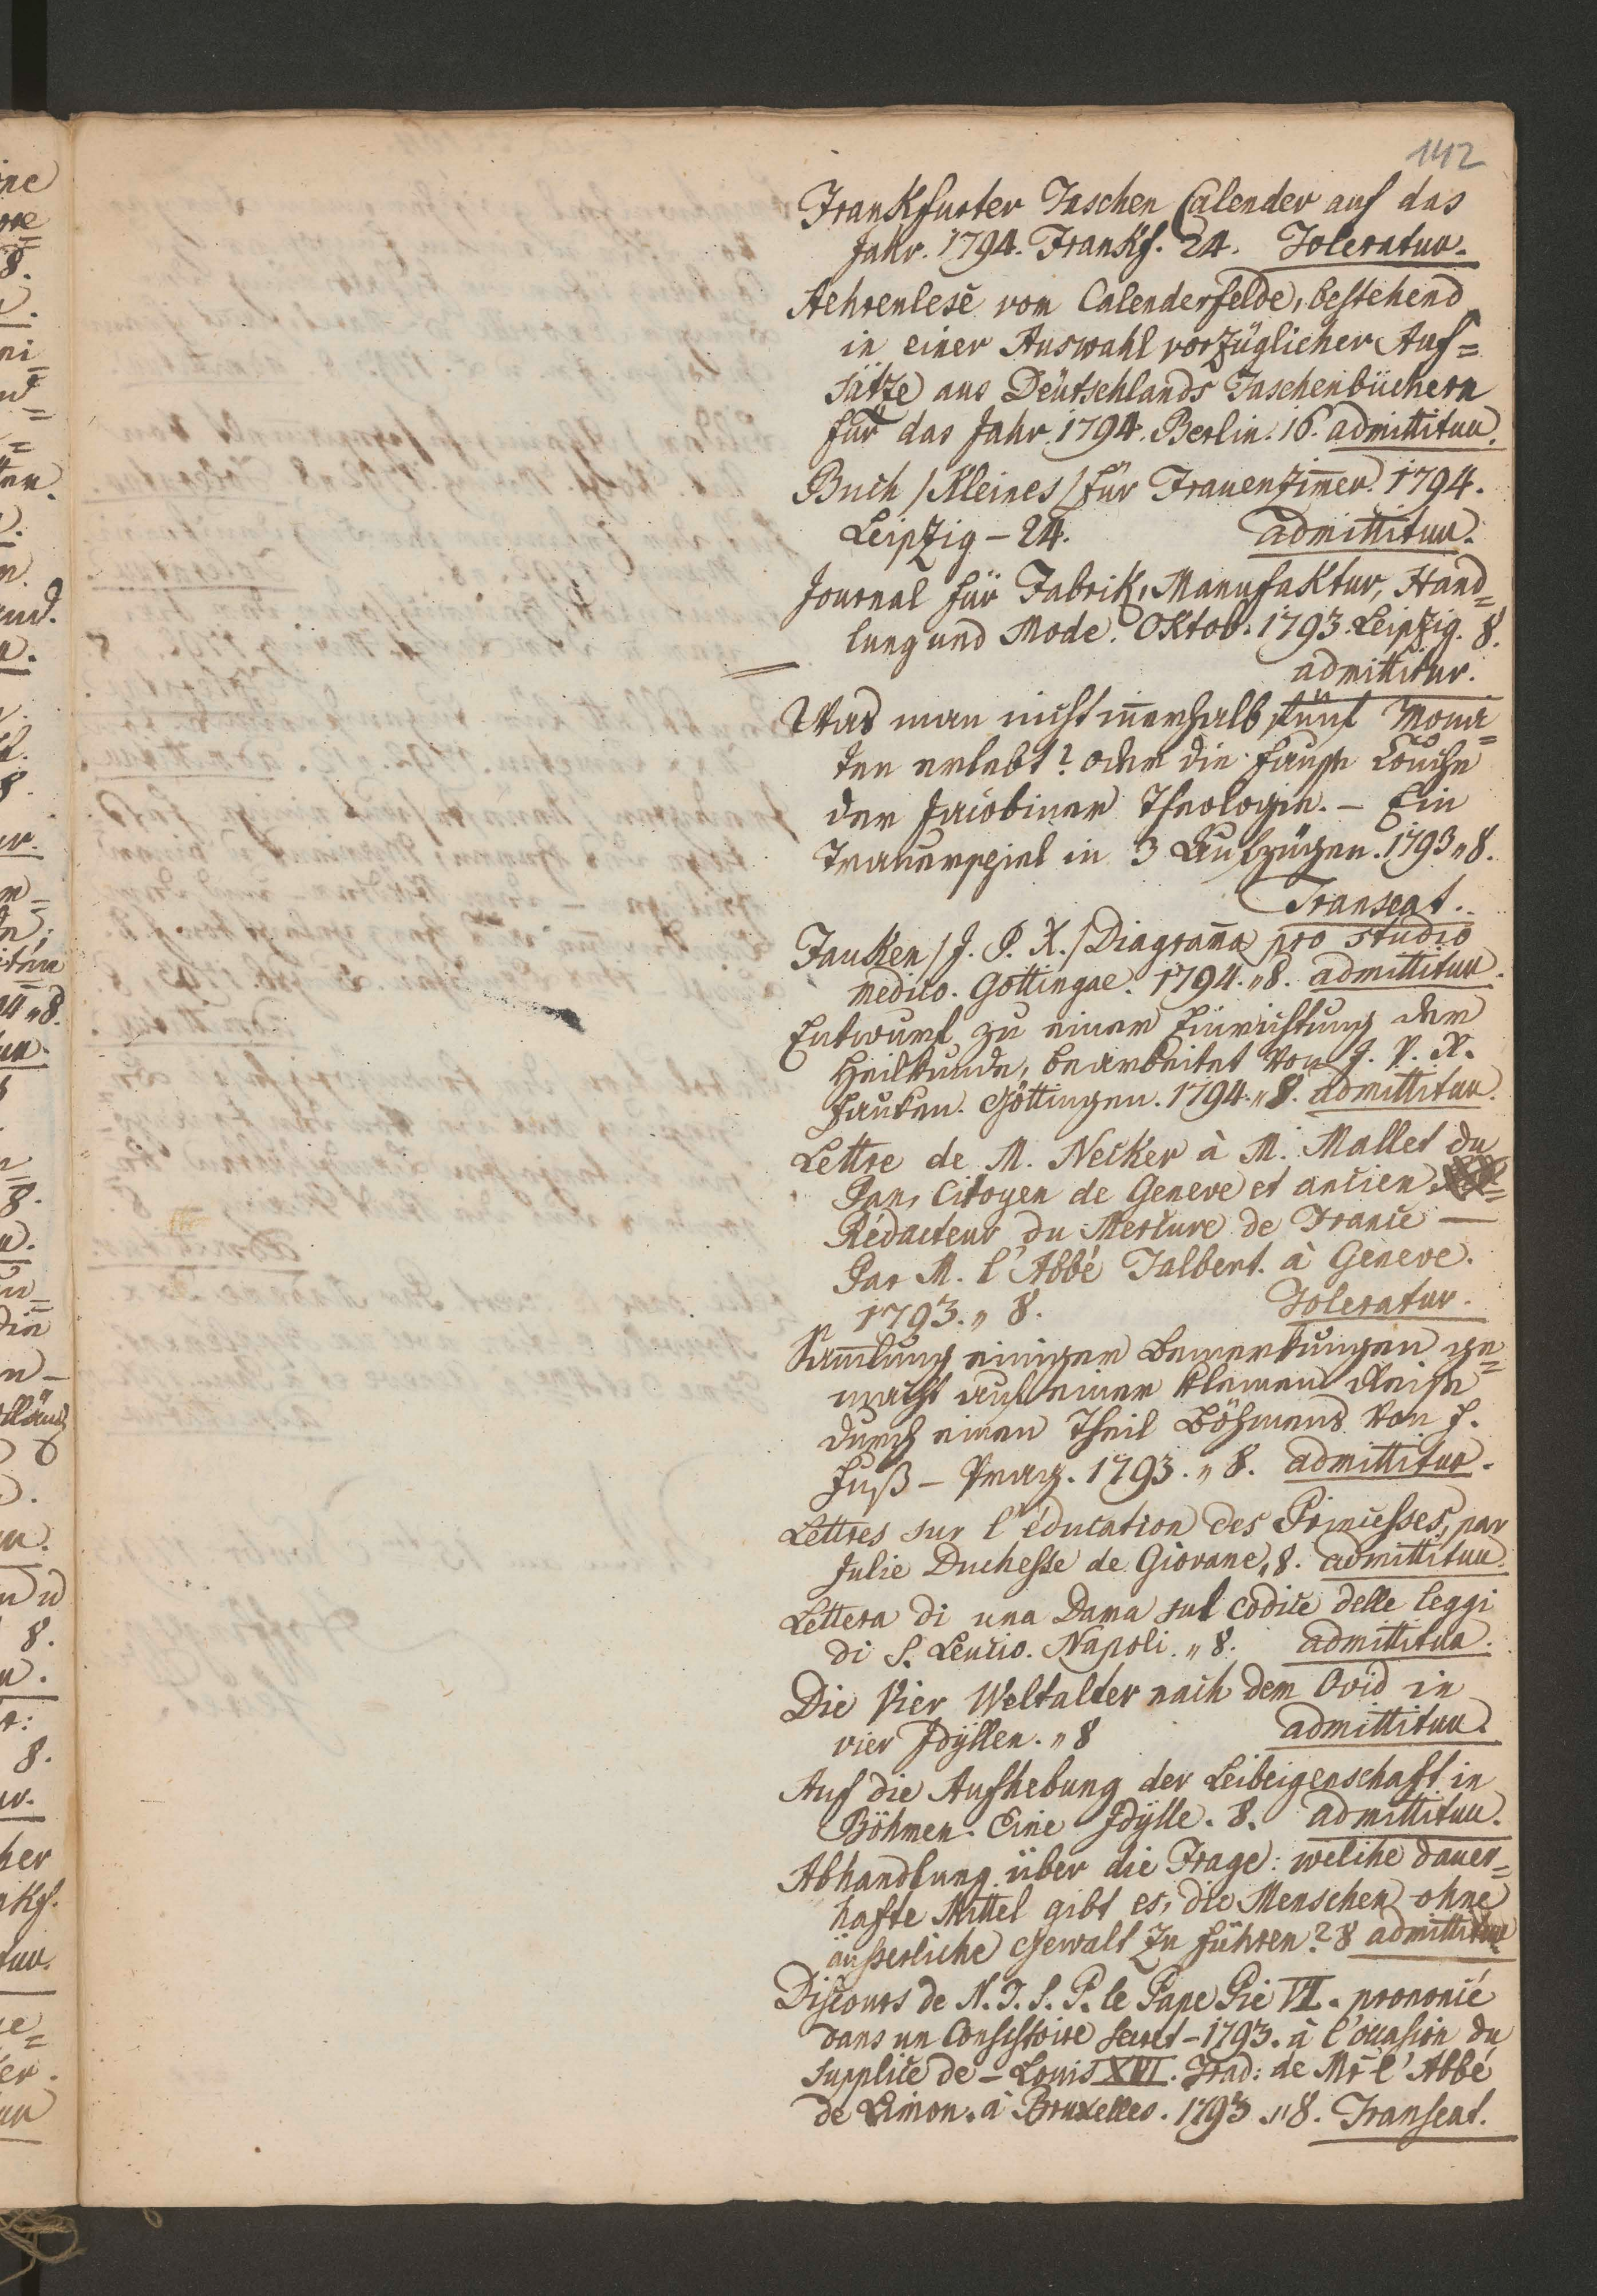 142
Frankfurter Taschen Calender auf das
Jahr. 1794. Frankf. 24. Toleratur.
Aehrenlese vom Calenderfelde, bestehend
in einer Auswahl vorzüglicher Auf=
sätze aus Deütschlands Taschenbüchern
für das Jahr 1794. Berlin. 16. admittitur.
Buch /Kleines/ für Frauenzim̄er. 1794.
Leipzig – 24. admittitur.
Journal für Fabrik, Manufaktur, Hand=
lung und Mode. Oktob. 1793. Leipzig. 8.
admittitur.
Was man nicht in̄erhalb fünf Mona=
ten erlebt? oder die
der Jacobiner Theologie. – Ein
Trauerspiel in 3 Aufzügen. 1793 „ 8.
Transeat.
Fauken /J. P. X./ Diagram̄a pro studio
medico. Gottingae. 1794. „ 8. admittitur.
Entwurf zu einer Einrichtung der
Heilkunde, bearbeitet von J. P. X.
Fauken. Göttingen. 1794. „ 8. admittitur.
Lettre de M. Necker à M. Mallet du
Pan, Citoyen de Geneve et ancien
Rédacteur du Mercure de France —
Par M. l'Abbé Talbert. à Geneve.
1793. „ 8. Toleratur.
Sam̄lung einiger Bemerkungen ge=
macht auf einer kleinen Reise
durch einen Theil Böhmens von F.
Fuß – Prag. 1793. „ 8. admittitur.
Lettres sur l'éducation des Princesses, par
Julie Duchesse de Giovane, 8. admittitur.
Lettera di una Dama sul codice delle leggi
di S. Leucio. Napoli. „ 8. admittitur.
Die Vier Weltalter nach dem Ovid in
vier Idÿllen. „ 8 admittitur.
Auf die Aufhebung der Leibeigenschaft in
Böhmen. Eine Idÿlle. 8. admittitur.
Abhandlung über die Frage: welche dauer=
hafte Mittel gibt es, die Menschen ohne
äusserliche Gewalt zu führen? 8 admittitur
Discours de N. T. S. P. le Pape Pie VI. prononcé
dans un Consistoire secret – 1793. à l'occasion du
supplice de – Louis XVI. Trad: de Mr l'Abbé
de Limon. à Bruxelles. 1793. „ 8. Transeat.